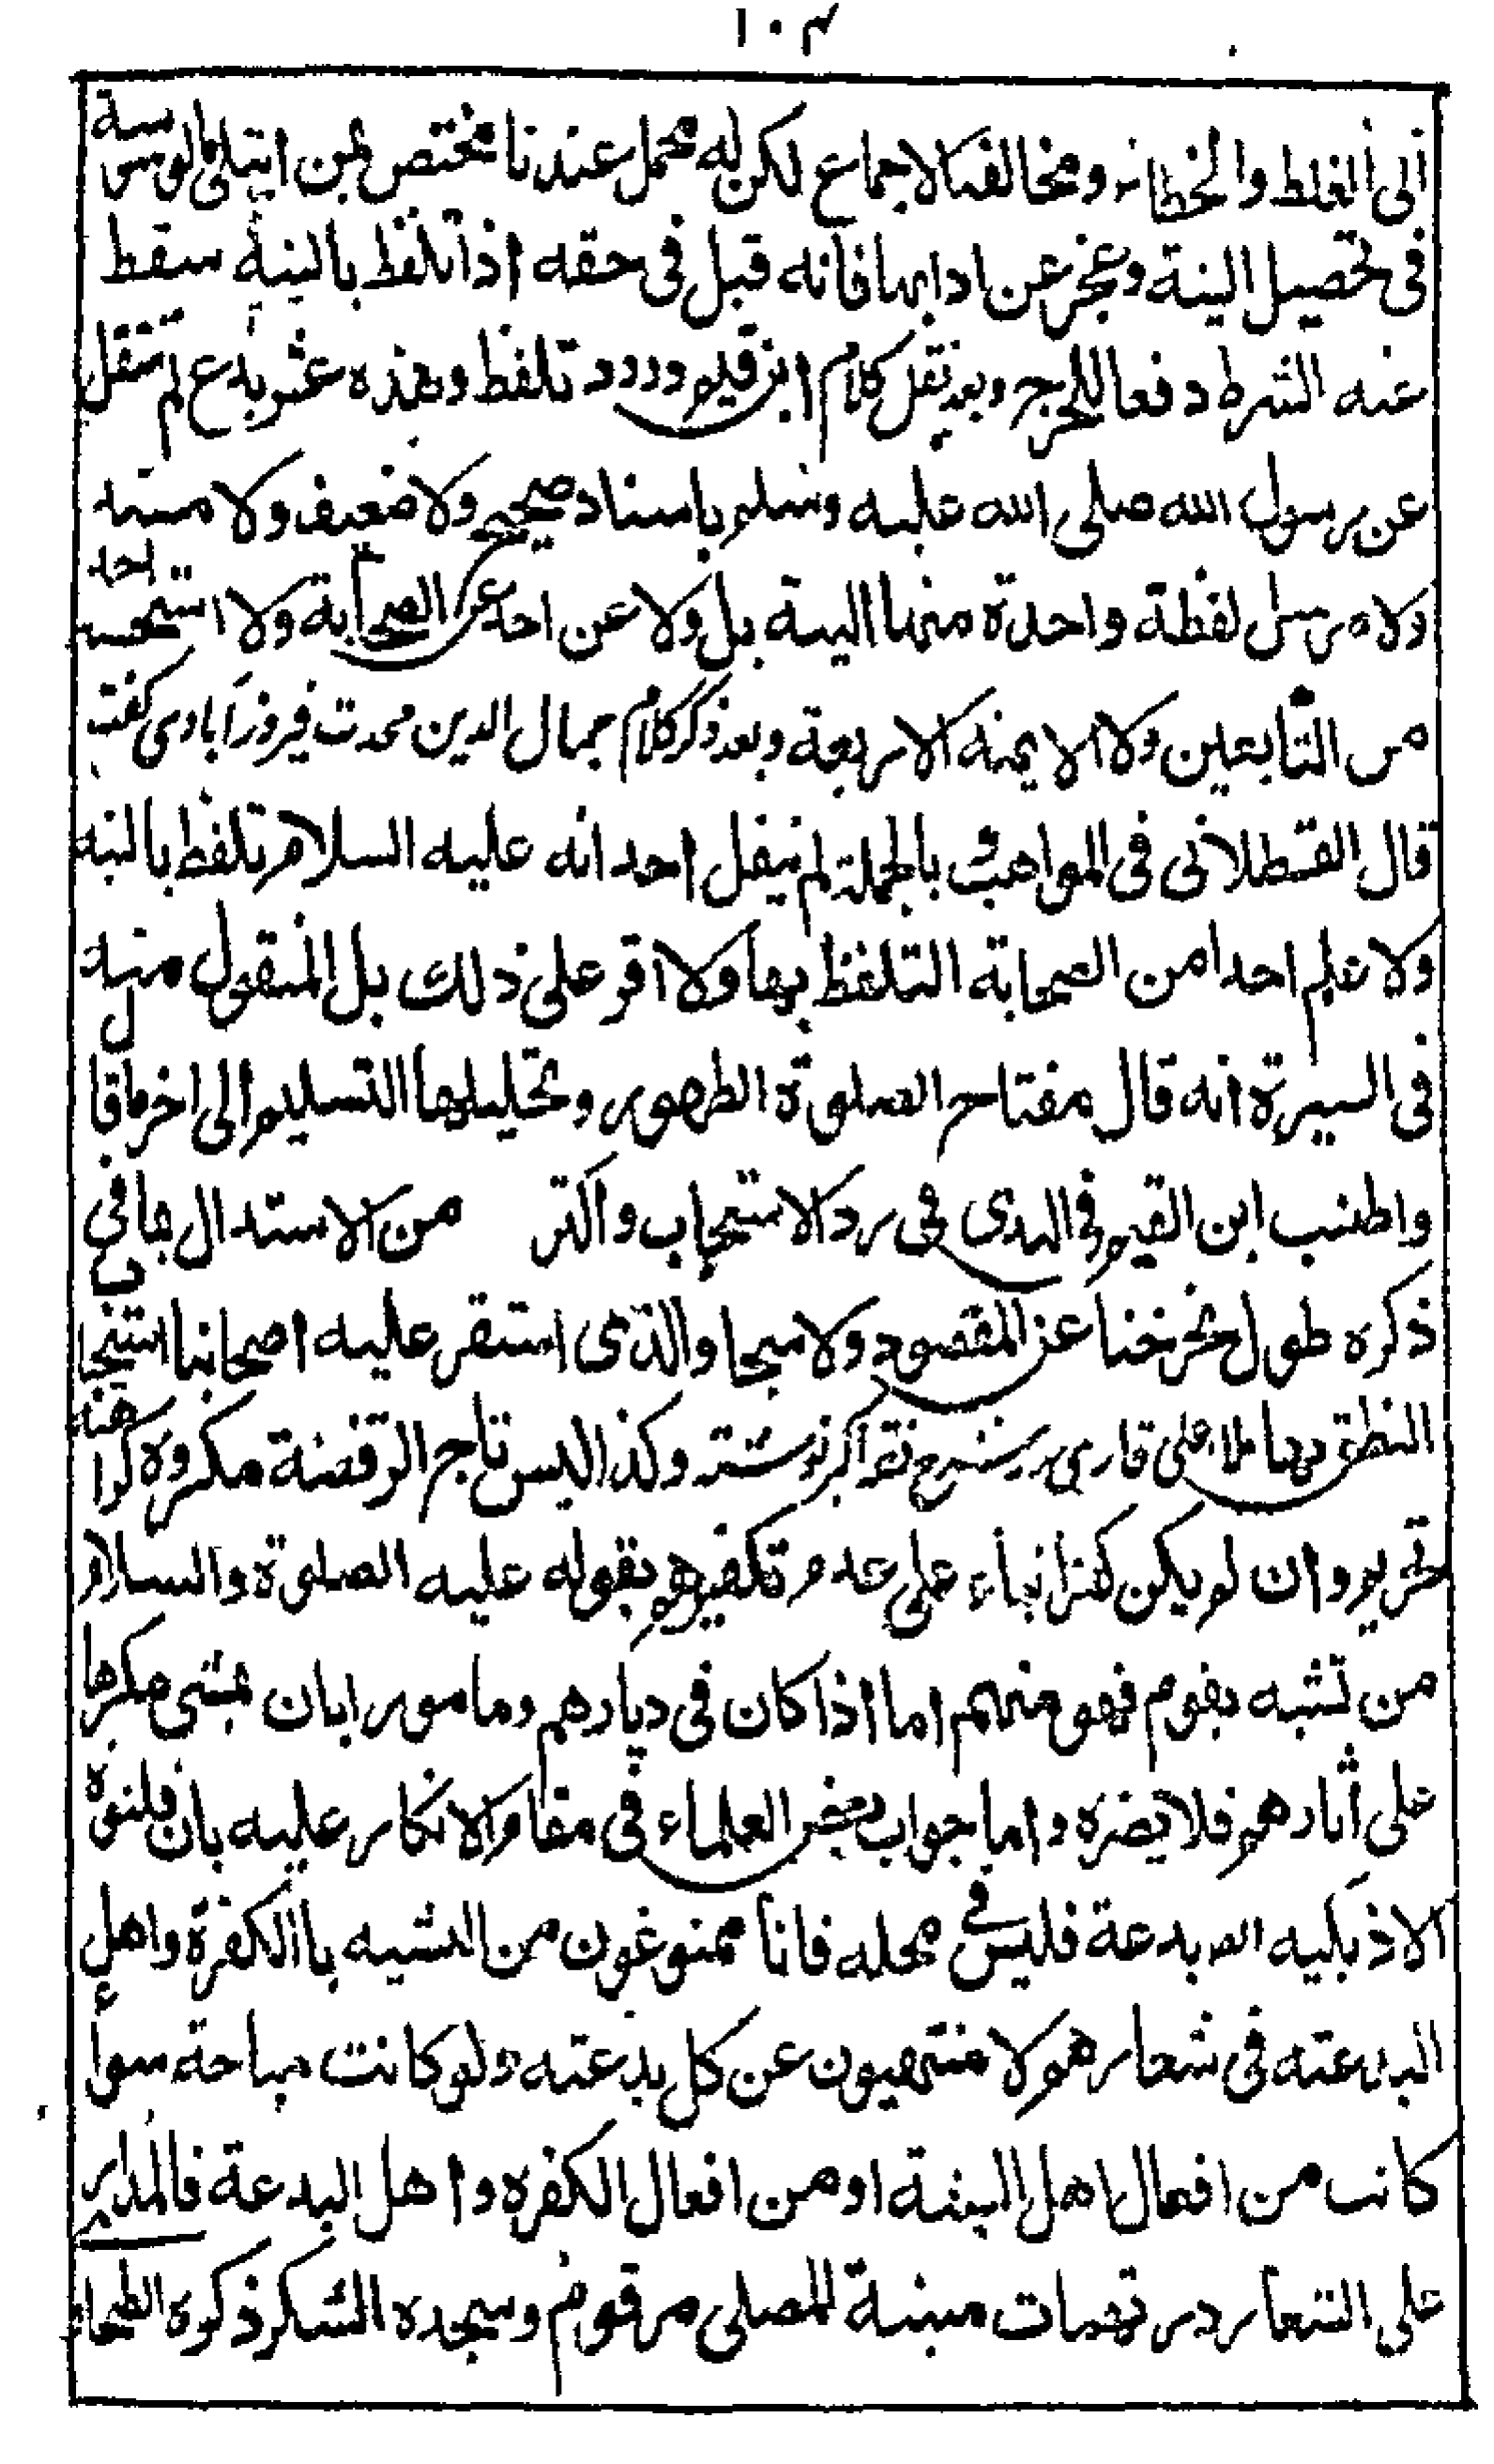 ١٠٣
الى الغلط والخطاء ومخالفة الاجماع لكن له محمل عندنا مختص لمن ابتلى بالوسوسة
فى تحصيل النية وعجز عن ادابها فانه قيل فى حقه اذا تلفظ بالنية سقط
عنه الشرط دفعا للحرج وبعد نقل كلام ابن قيم در رد تلفظ وهذه عشر بدع لم تنقل
عن رسول الله صلى الله عليه وسلم باسناد صحيح ولا ضعيف ولا مسند
ولا مرسل لفظة واحدة منها البتة بل ولا عن احد عن الصحابة ولا استحسنه احد
من التابعين ولا الايمنه الاربعة وبعد ذكر كلام جمال الدين محدث فيروزآبادى كفت
قال القسطلانى فى المواهب بالجملة لم ينقل احد انه عليه السلام تلفظ بالنية
ولا علم احدا من الصحابة التلفظ بها ولا اقر على ذلك بل المنقول منه
فى السيرة انه قال مفتاح الصلوة الطهور وتحليلها التسليم الى اخر ما قال
واطنب ابن القيم فى الهدى فى رد الاستحباب واكثر من الاستدال بما فى
ذكره طول يخرخنا عن المقصود ولا سيما والذى استقر عليه اصحابنا استحباب
النطق بها ملا على قارى در شرح فقه اكبر نوشته وكذا لبس تاج الرفضة مكروه كراهته
تحريم وان لم يكن كفرا بناء على عدم تكفيرهم بقوله عليه الصلوة والسلام
من تشبه بقوم فهو منهم اما اذا كان فى ديارهم ومامورا بان يمشى مكرها
على آثارهم فلا يضره واما جواب بعض العلماء فى مقام الانكار عليه بان قلنوة
الاذبكيه بدعة فليس فى محله فانا ممنوعون من التشبه باالكفرة واهل
البدعته فى شعارهم لا منتهيون عن كل بدعته ولو كانت مباحة سواء
كانت من افعال اهل السنة او من افعال الكفره واهل البدعة فالمدار
على الشعار در تهمات منية المصلى مرقوم وسجده الشكر ذكره الطحاء